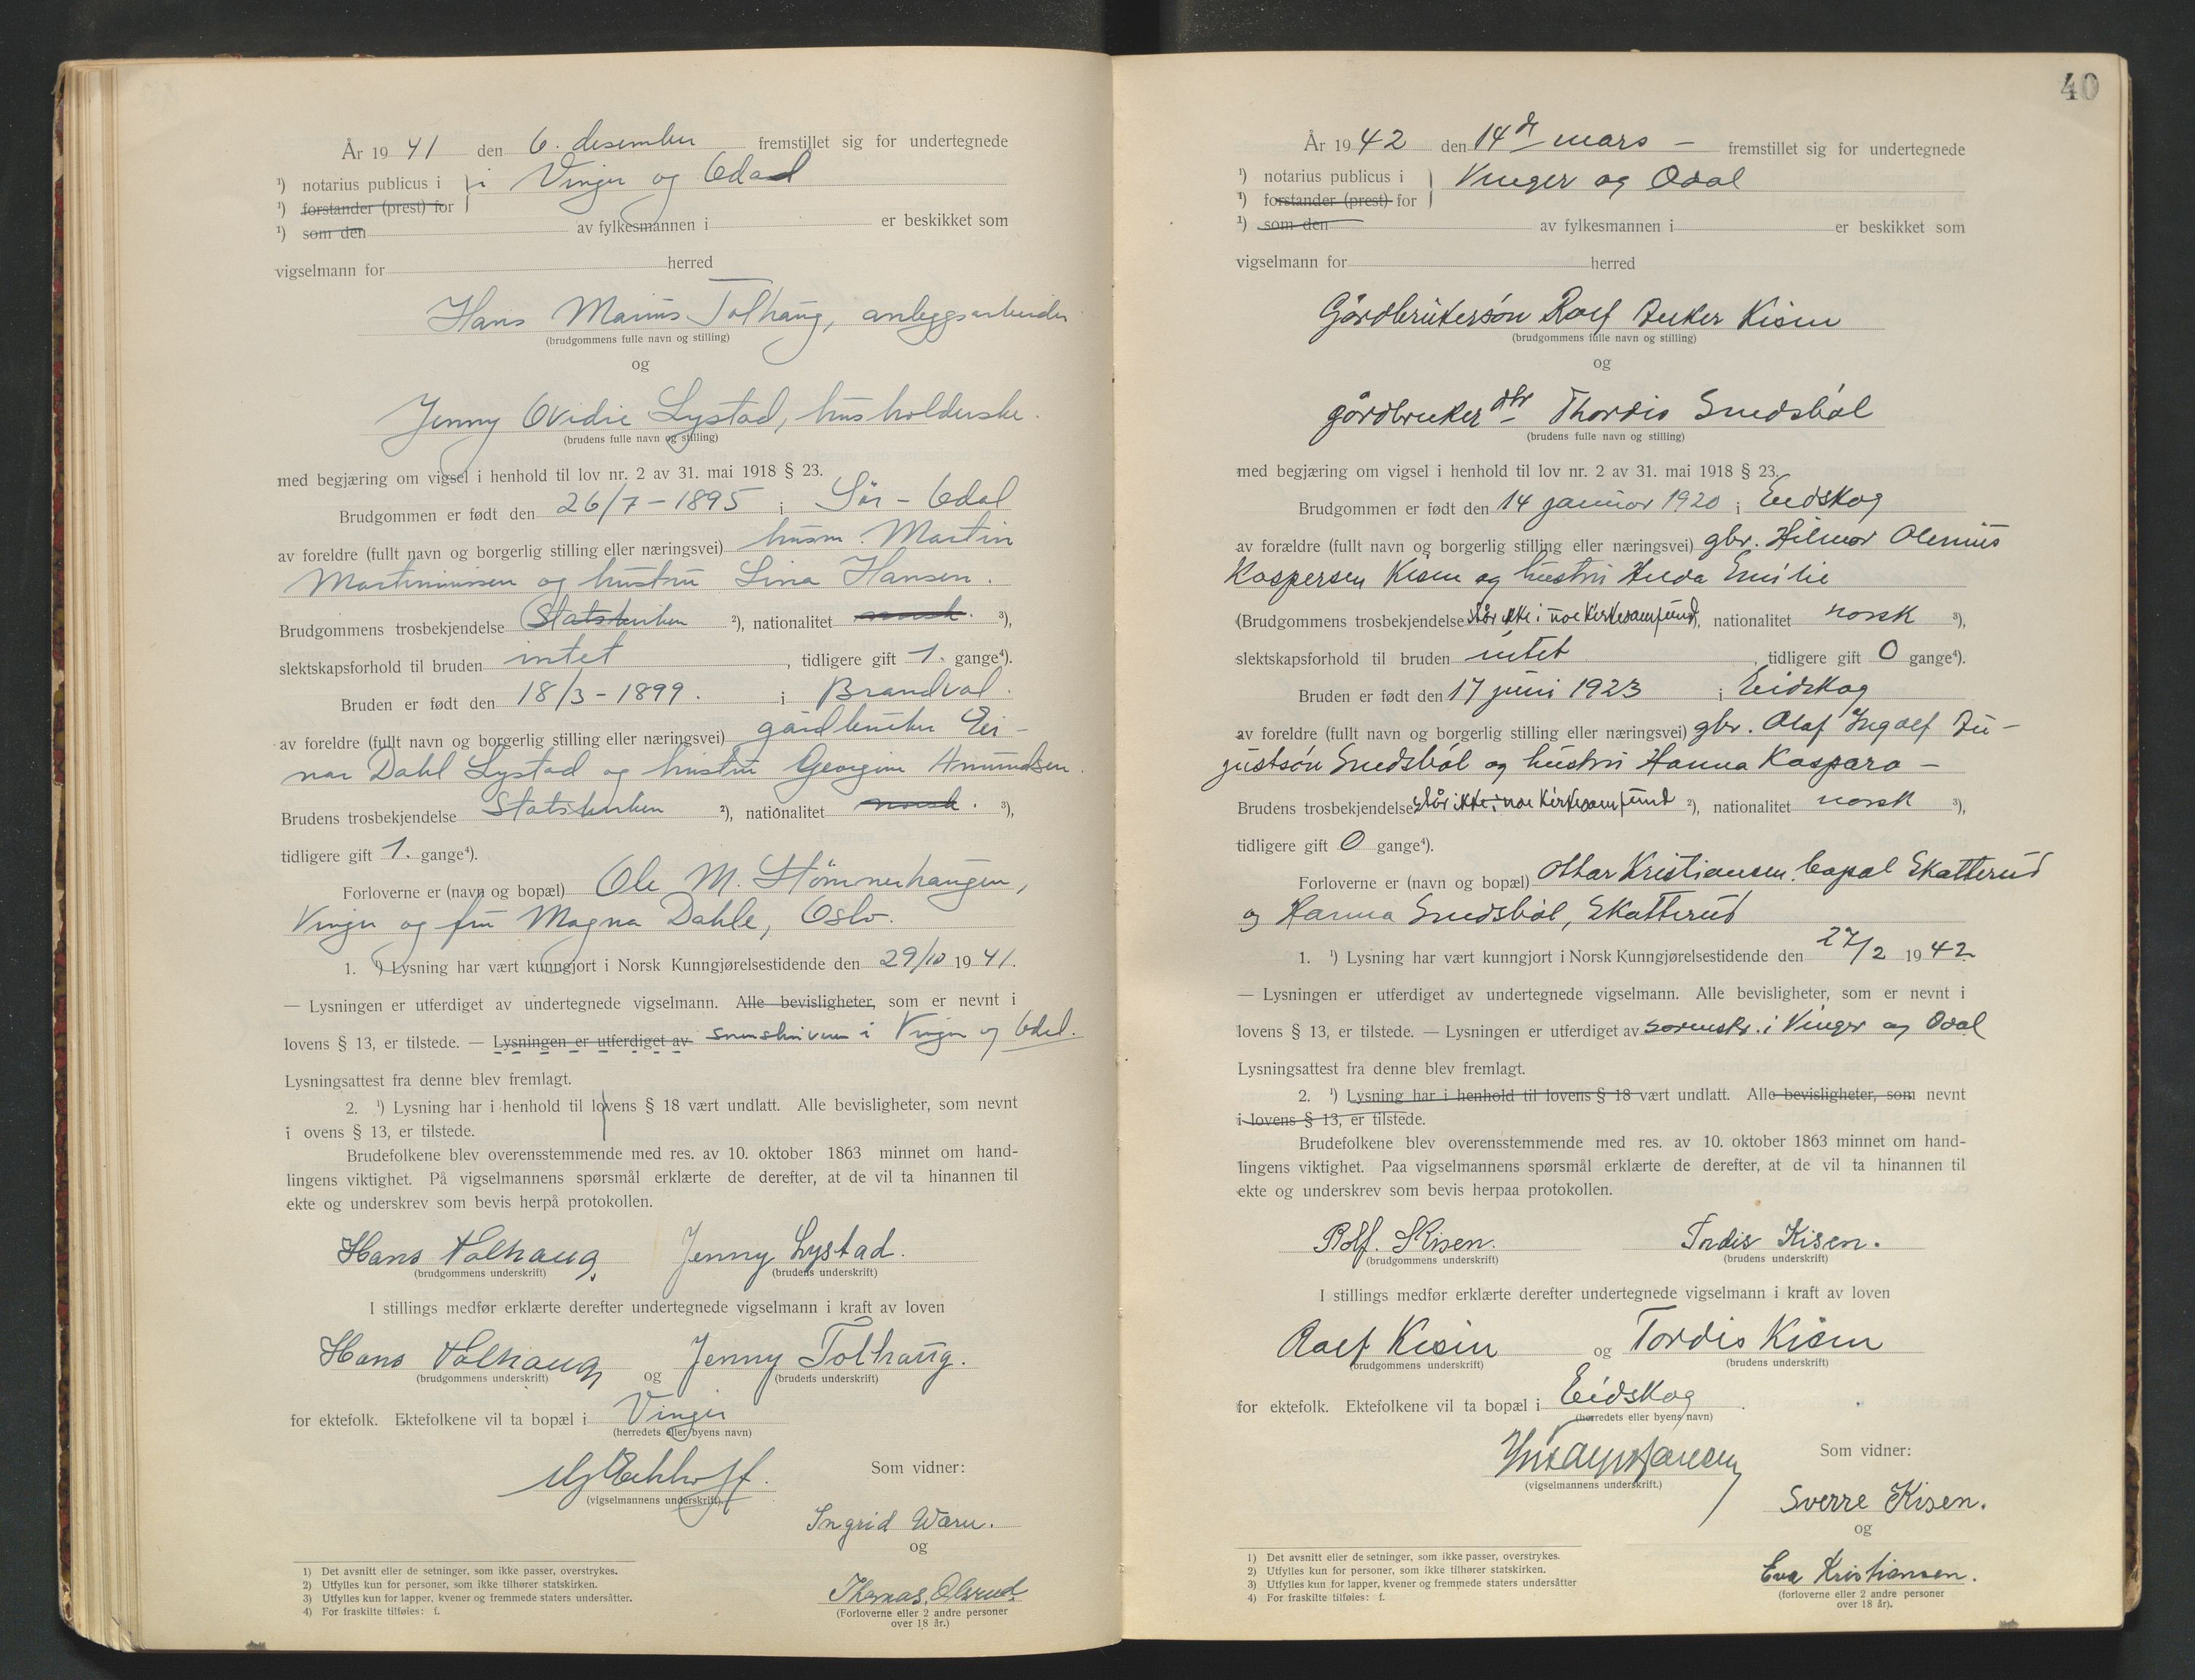 År 1941 den 6. desember fremstillet sig for undertegnede
¹) notarius publicus i } i Vinger og Odal
¹) forstander (prest) for
¹) som den av fylkesmannen i er beskikket som
vigselmann for herred
Hans Marius Tolhaug, anleggsarbeider
(brudgommens fulle navn og stilling)
og
Jenny Ovidie Lystad, husholderske.
(brudens fulle navn og stilling)
med begjæring om vigsel i henhold til lov nr. 2 av 31. mai 1918 § 23.
Brudgommen er født den 26/7 - 1895 i Sør - Odal
av foreldre (fullt navn og borgerlig stilling eller næringsvei) husm. Martin
Martiniussen og hustru Lina Hansen.
Brudgommens trosbekjendelse Statskirken ²), nationalitet norsk. ³),
slektskapsforhold til bruden intet, tidligere gift 1. gange⁴).
Bruden er født den 18/3 - 1899. i Brandval.
av foreldre (fullt navn og borgerlig stilling eller næringsvei) gårdbruker Ei-
nar Dahl Lystad og hustru Georgine Amundsen.
Brudens trosbekjendelse Statskirken ²), nationalitet norsk. ³),
tidligere gift 1. gange⁴).
Forloverne er (navn og bopæl) Ole M. Stömnerhaugen,
Vinger og fru Magna Dahle, Oslo.
1. ¹) Lysning har vært kunngjort i Norsk Kunngjørelsestidende den 29/10 1941.
— Lysningen er utferdiget av undertegnede vigselmann. Alle bevisligheter, som er nevnt i
lovens § 13, er tilstede. — Lysningen er utferdiget av sorenskriveren i Vinger og Odal.
Lysningsattest fra denne blev fremlagt.
2. ¹) Lysning har i henhold til lovens § 18 vært undlatt. Alle bevisligheter, som nevnt
i ovens § 13, er tilstede.
Brudefolkene blev overensstemmende med res. av 10. oktober 1863 minnet om hand-
lingens viktighet. På vigselmannens spørsmål erklærte de derefter, at de vil ta hinannen til
ekte og underskrev som bevis herpå protokollen.
Hans Tolhaug. Jenny Lystad.
(brudgommens underskrift) (brudens underskrift)
I stillings medfør erklærte derefter undertegnede vigselmann i kraft av loven
Hans Tolhaug og Jenny Tolhaug.
(brudgommens underskrift) (brudens underskrift)
for ektefolk. Ektefolkene vil ta bopæl i Vinger
(herredets eller byens navn)
Som vidner:
(vigselmannens underskrift).
Ingrid Waru.
og
Thomas Olsrud
(Forloverne eller 2 andre personer
over 18 år.)
1) Det avsnitt eller de setninger, som ikke passer, overstrykes.
2) Utfylles kun for personer, som ikke tilhører statskirken.
3) Utfylles kun for lapper, kvener og fremmede staters undersåtter.
4) For fraskilte tilføies: f.
40
År 1942 den 14de mars — fremstillet sig for undertegnede
¹) notarius publicus i } Vinger og Odal
¹) forstander (prest) for
¹) som den av fylkesmannen i er beskikket som
vigselmann for herred
Gårdbrukersøn Rolf Kisen
(brudgommens fulle navn og stilling)
og
gårdbruker dtr Thordis Smedsbøl
(brudens fulle navn og stilling)
med begjæring om vigsel i henhold til lov nr. 2 av 31. mai 1918 § 23.
Brudgommen er født den 14 januar 1920 i Eidskog
av forældre (fullt navn og borgerlig stilling eller næringsvei) gbr. Hilmar Olenius
Kaspersen Kisen og hustru Hulda Emilie
(Brudgommens trosbekjendelse står ikke i noe kirkesamfund, nationalitet norsk ³),
slektskapsforhold til bruden intet, tidligere gift 0 gange⁴).
Bruden er født den 17 juni 1923 i Eidskog
av foreldre (fullt navn og borgerlig stilling eller næringsvei) gbr. Olaf Ingolf Ju-
justsøn Smedsbøl og hustru Hanna Kaspara —
Brudens trosbekjendelse står ikke i noe kirkesamfund ²), nationalitet norsk ³),
tidligere gift 0 gange⁴).
Forloverne er (navn og bopæl) Ottar Kristiansen bopæl Skatterud
og Hanna Smedsbøl, Skatterud
1. ¹) Lysning har vært kunngjort i Norsk Kunngjørelsestidende den 27/2 1942
— Lysningen er utferdiget av undertegnede vigselmann. Alle bevisligheter, som er nevnt i
lovens § 13, er tilstede. — Lysningen er utferdiget av sorenskr. i Vinger og Odal
Lysningsattest fra denne blev fremlagt.
2. ¹) Lysning har i henhold til lovens § 18 vært undlatt. Alle bevisligheter, som nevnt
i lovens § 13, er tilstede.
Brudefolkene blev overensstemmende med res. av 10. oktober 1863 minnet om hand-
lingens viktighet. Paa vigselmannens spørsmål erklærte de derefter, at de vil ta hinannen til
ekte og underskrev som bevis herpaa protokollen.
Rolf. Kisen. Tordis Kisen.
(brudgommens underskrift) (brudens underskrift)
I stillings medfør erklærte derefter undertegnede vigselmann i kraft av loven
Rolf Kisen og Tordis Kisen
(brudgommens underskrift) (brudens underskrift)
for ektefolk. Ektefolkene vil ta bopæl i Eidskog.
(herredets eller byens navn)
Som vidner:
(vigselmannens underskrift.)
Sverre Kisen.
og
Eva Kristiansen.
(forloverne eller 2 andre personer
over 18 år).
1) Det avsnitt eller de setninger, som ikke passer, overstrykes.
2) Utfylles kun for personer, som ikke tilhører statskirken.
3) Utfylles kun for lapper, kvener og fremmede staters undersåtter
4) For fraskilte tilføies: f.